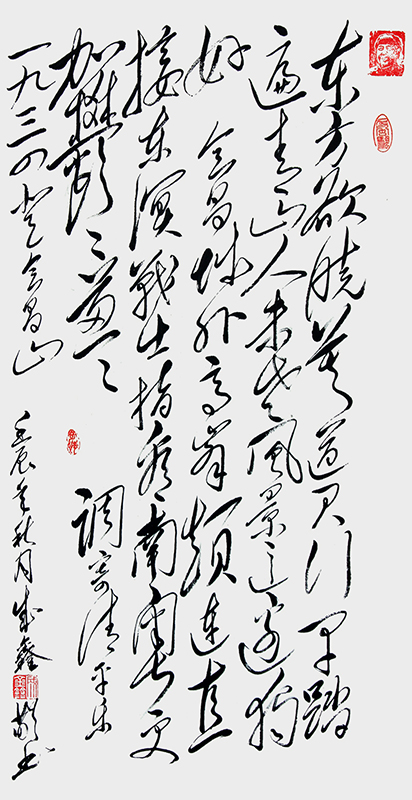 东方欲晓莫道君行早踏
遍青山人未老风景这边独
好 会昌城外高峰颠连直
接东溟战士指看南粤更
加鬱々葱々
调寄清平乐
一九三四登会昌山
壬辰年秋月成鑫敬书